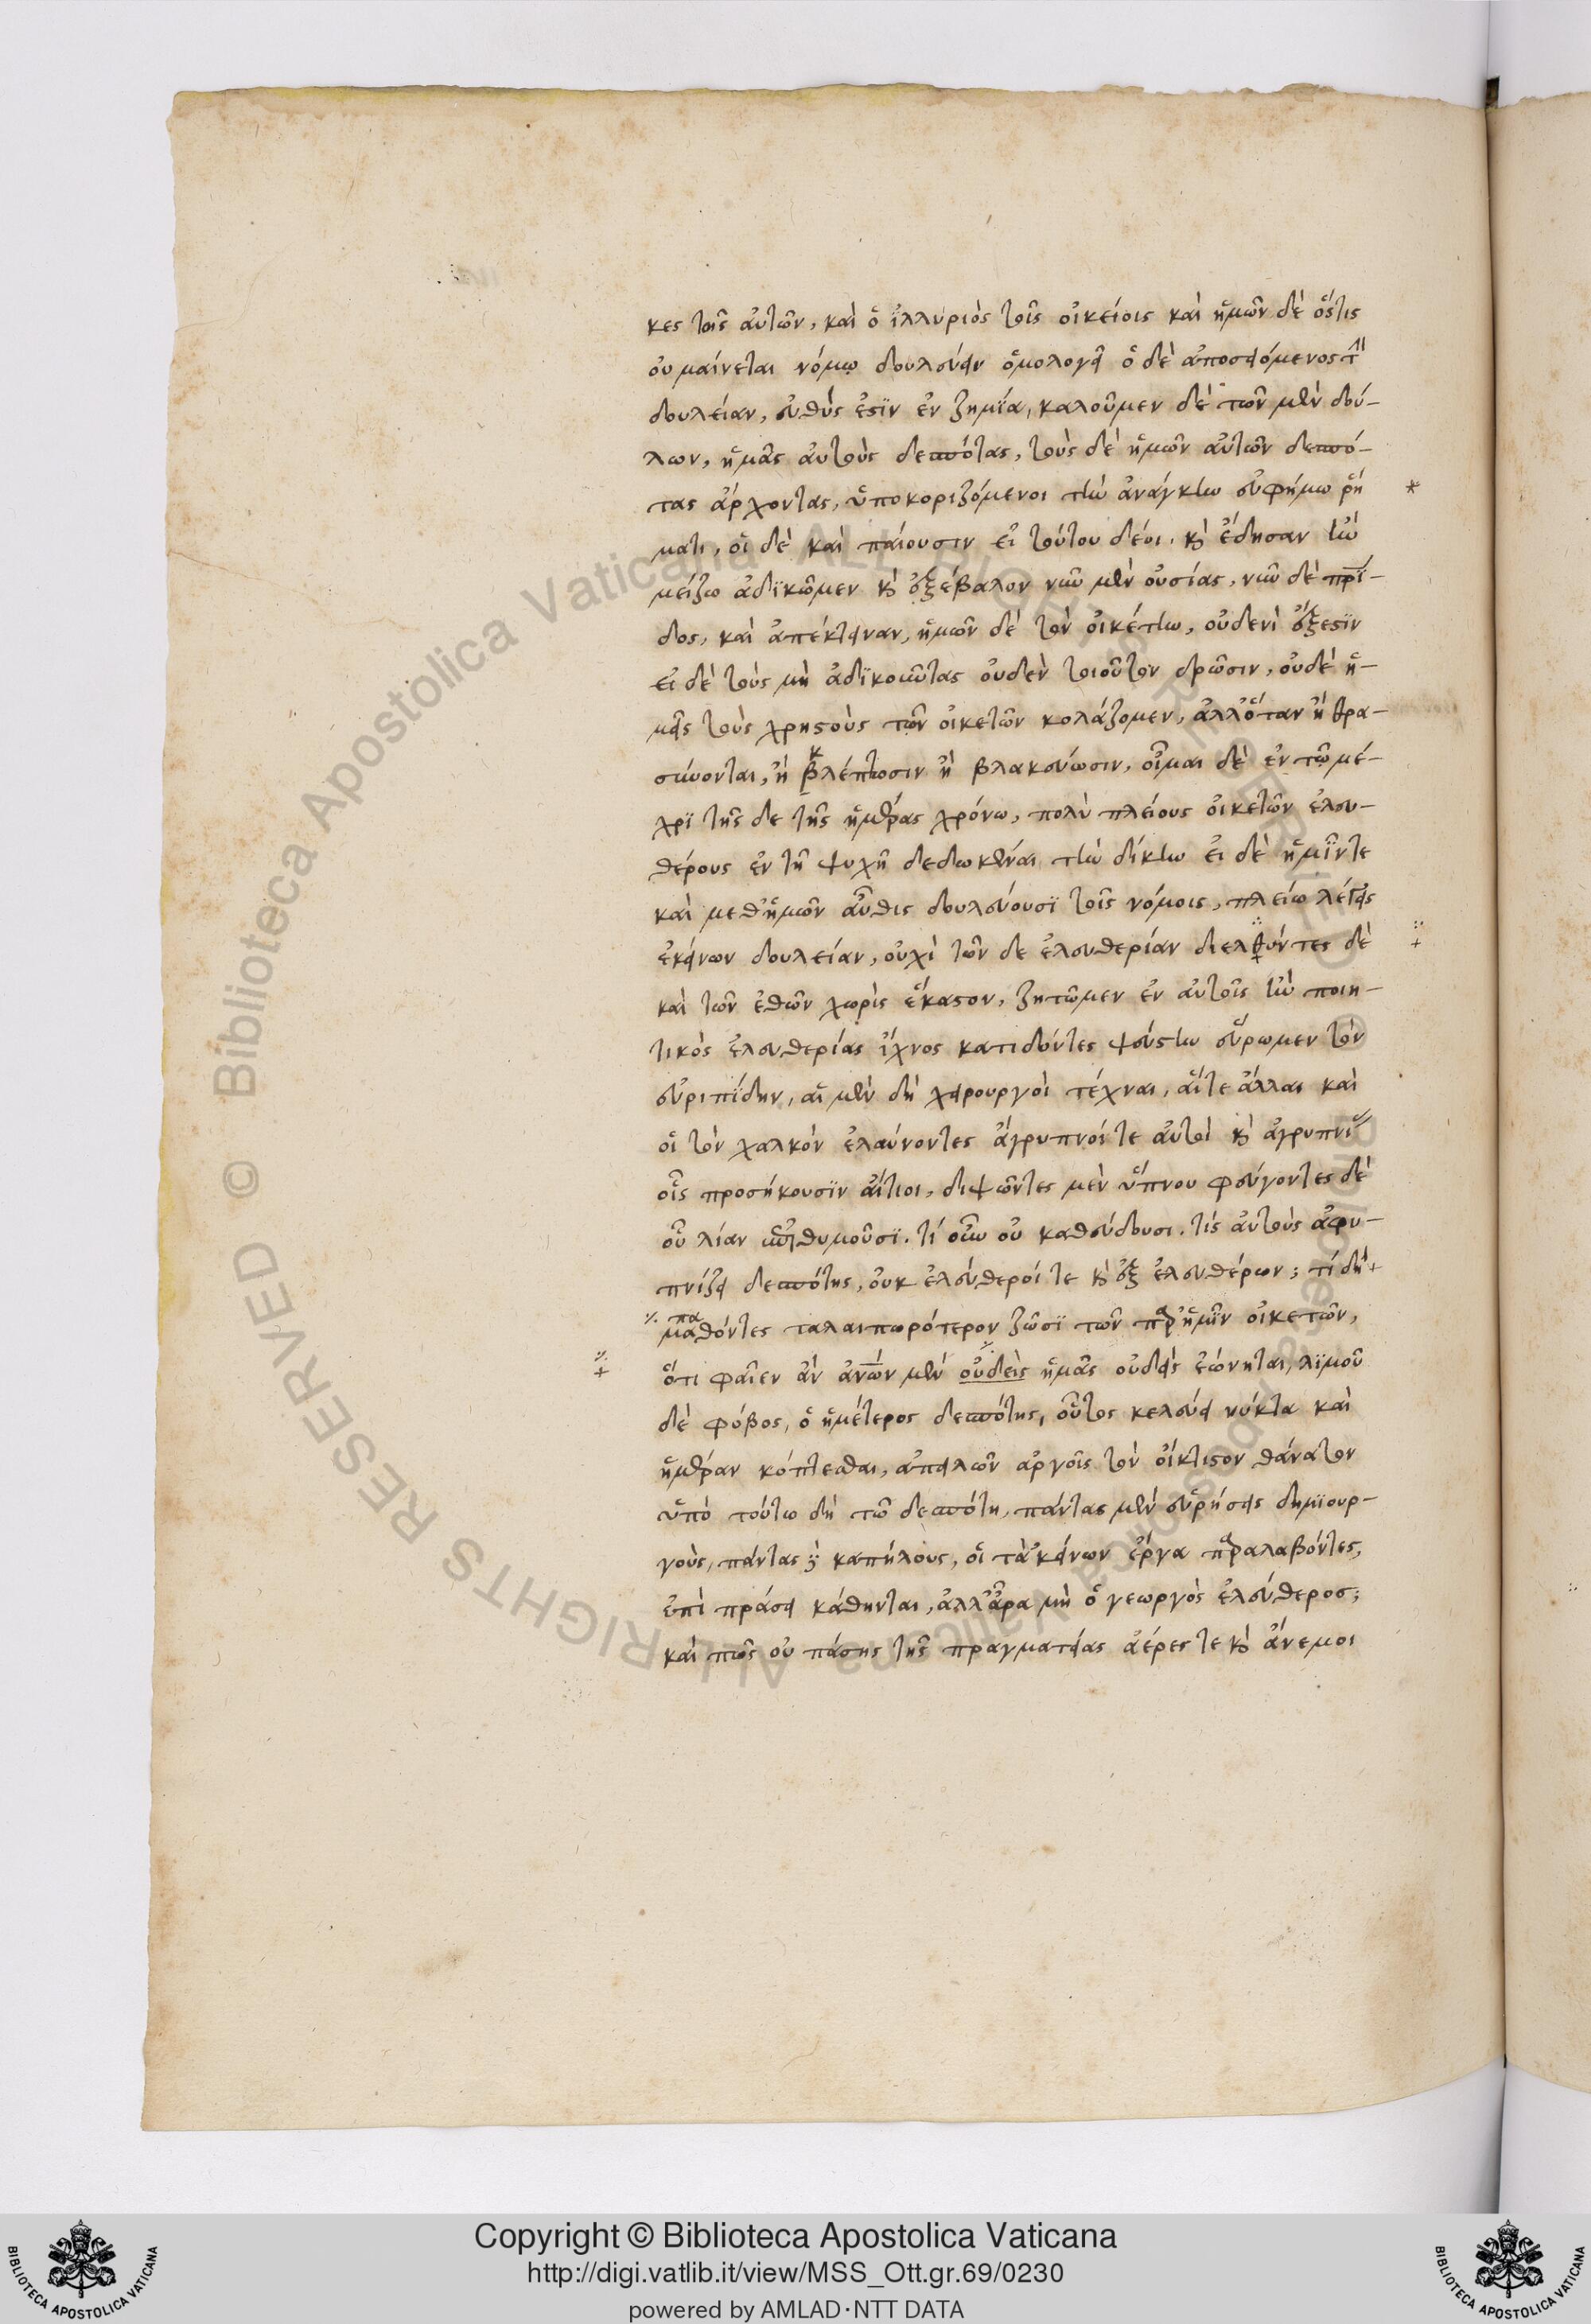 κες τοῖς αὐτῶν, καὶ ὁ ἰλλυριὸς τοῖς οἰκείοις καὶ ἡμῶν δὲ ὅστις
οὐ μαίνεται νόμῳ δουλεύειν ὁμολογεῖ ὁ δὲ ἀποσειόμενος τὴν
δουλείαν, εὐθύς ἐστὶν ἐν ζημία, καλοῦμεν δὲ τῶν μὲν δού-
λων, ἡμᾶς αὐτοὺς δεσπότας, τοὺς δὲ ἡμῶν αὐτῶν δεσπό-
τας ἄρχοντας, ὑποκοριζόμενοι τὴν ἀνάγκην εὐφήμω ῥή
ματι, οἱ δὲ καὶ παίουσιν εἰ τούτου δέοι. καὶ ἔδησαν ἢν
μείζω ἀδικῶμεν καὶ ἐξέβαλον νῦν μὲν οὐσίας, νῦν δὲ πρί-
δος, καὶ ἀπέκτειναν, ἡμῶν δὲ τὸν οἰκέτην, οὐδενὶ ἔξεστιν
εἰ δὲ τοὺς μὴ ἀδικοῦντας οὐδὲν τοιοῦτον δρῶσιν, οὐδὲ ἡ-
μεῖς τοὺς χρηστοὺς τῶν οἰκετῶν κολάζομεν, ἀλλ' ὅταν ἢ θρα-
σύνονται, ἢ βλέπτωσιν ἢ βλακεύωσιν, οἶμαι δὲ ἐν τῷ μέ-
χρι τῆς δε τῆς ἡμέρας χρόνω, πολὺ πλείους οἰκετῶν ἐλευ-
θέρους ἐν τῆ ψυχῆ δεδωκέναι τὴν δίκην εἰ δὲ ἡμῖν τε
καὶ μεθ' ἡμῶν αὖθις δουλεύουσι τοῖς νόμοις, πλείω λέγεις
ἐκείνων δουλείαν, οὐχὶ τῶν δε ἐλευθερίαν διελθόντες δὲ
καὶ τῶν ἐθῶν χωρὶς ἕκαστον, ζητῶμεν ἐν αὐτοῖς ἢν ποιη-
τικὸς ἐλευθερίας ἴχνος κατιδόντες ψεύστην εὕρωμεν τὸν
εὐριπίδην, αἱ μὲν δὴ χειρουργοὶ τέχναι, αἵ τε ἄλλαι καὶ
οἱ τὸν χαλκὸν ἐλαύνοντες ἄγρυπνοί τε αὐτοὶ καὶ ἀγρυπνί
οἷς προσήκουσιν αἴτιοι, διψῶντες μὲν ὕπνου φεύγοντες δὲ
οὗ λίαν ἐπιθυμοῦσι. τί οὖν οὐ καθεύδουσι. τίς αὐτοὺς ἀφυ-
πνίζει δεσπότης, οὐκ ἐλεύθεροί τε καὶ ἐξ ἐλευθέρων; τί δὴ
μαθόντες ταλαιπωρότερον ζῶσι τῶν παρ' ἡμῖν οἰκετῶν,
ὅτι φαῖεν ἂν ἀνων μὲν οὐδεὶς ἡμᾶς οὐδεὶς ἐώνηται, λιμοῦ
δὲ φόβος, ὁ ἡμέτερος δεσπότης, οὗτος κελεύει νύκτα καὶ
ἡμέραν κόπτεσθαι, ἀπειλῶν ἀργοῖς τὸν οἴκτιστον θάνατον
ὑπὸ τούτω δὴ τῶ δεσπότη, πάντας μὲν εὑρήσεις δημιουρ-
γοὺς, πάντας δὲ καπήλους, οἳ τὰ 'κείνων ἔργα παραλαβόντες,
ἐπὶ πράσει κάθηνται, ἀλλ' ἆρα μὴ ὁ γεωργὸς ἐλεύθερος;
καὶ πῶς οὐ πάσης τῆς πραγματείας ἀέρες τε καὶ ἄνεμοι
Copyright © Biblioteca Apostolica Vaticana
http://digi.vatlib.it/view/MSS_Ott.gr.69/0230
powered by AMLAD·NTT DATA